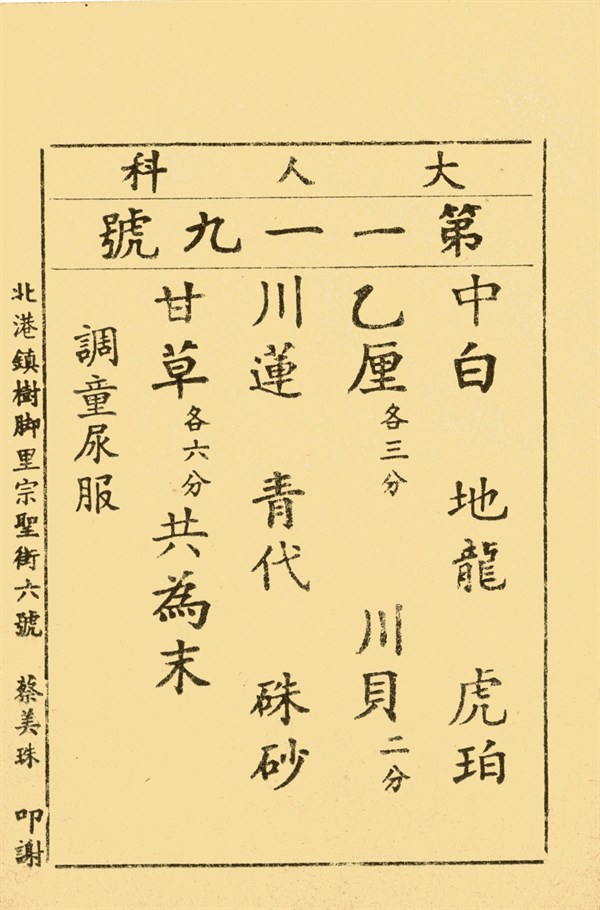 大人科
第一一九號
中白 地龍 虎珀
乙厘各三分 川貝二分
川蓮 青代 硃砂
甘草各六分共為末
調童尿服
北港鎮樹脚里宗聖街六號 蔡美珠 叩謝